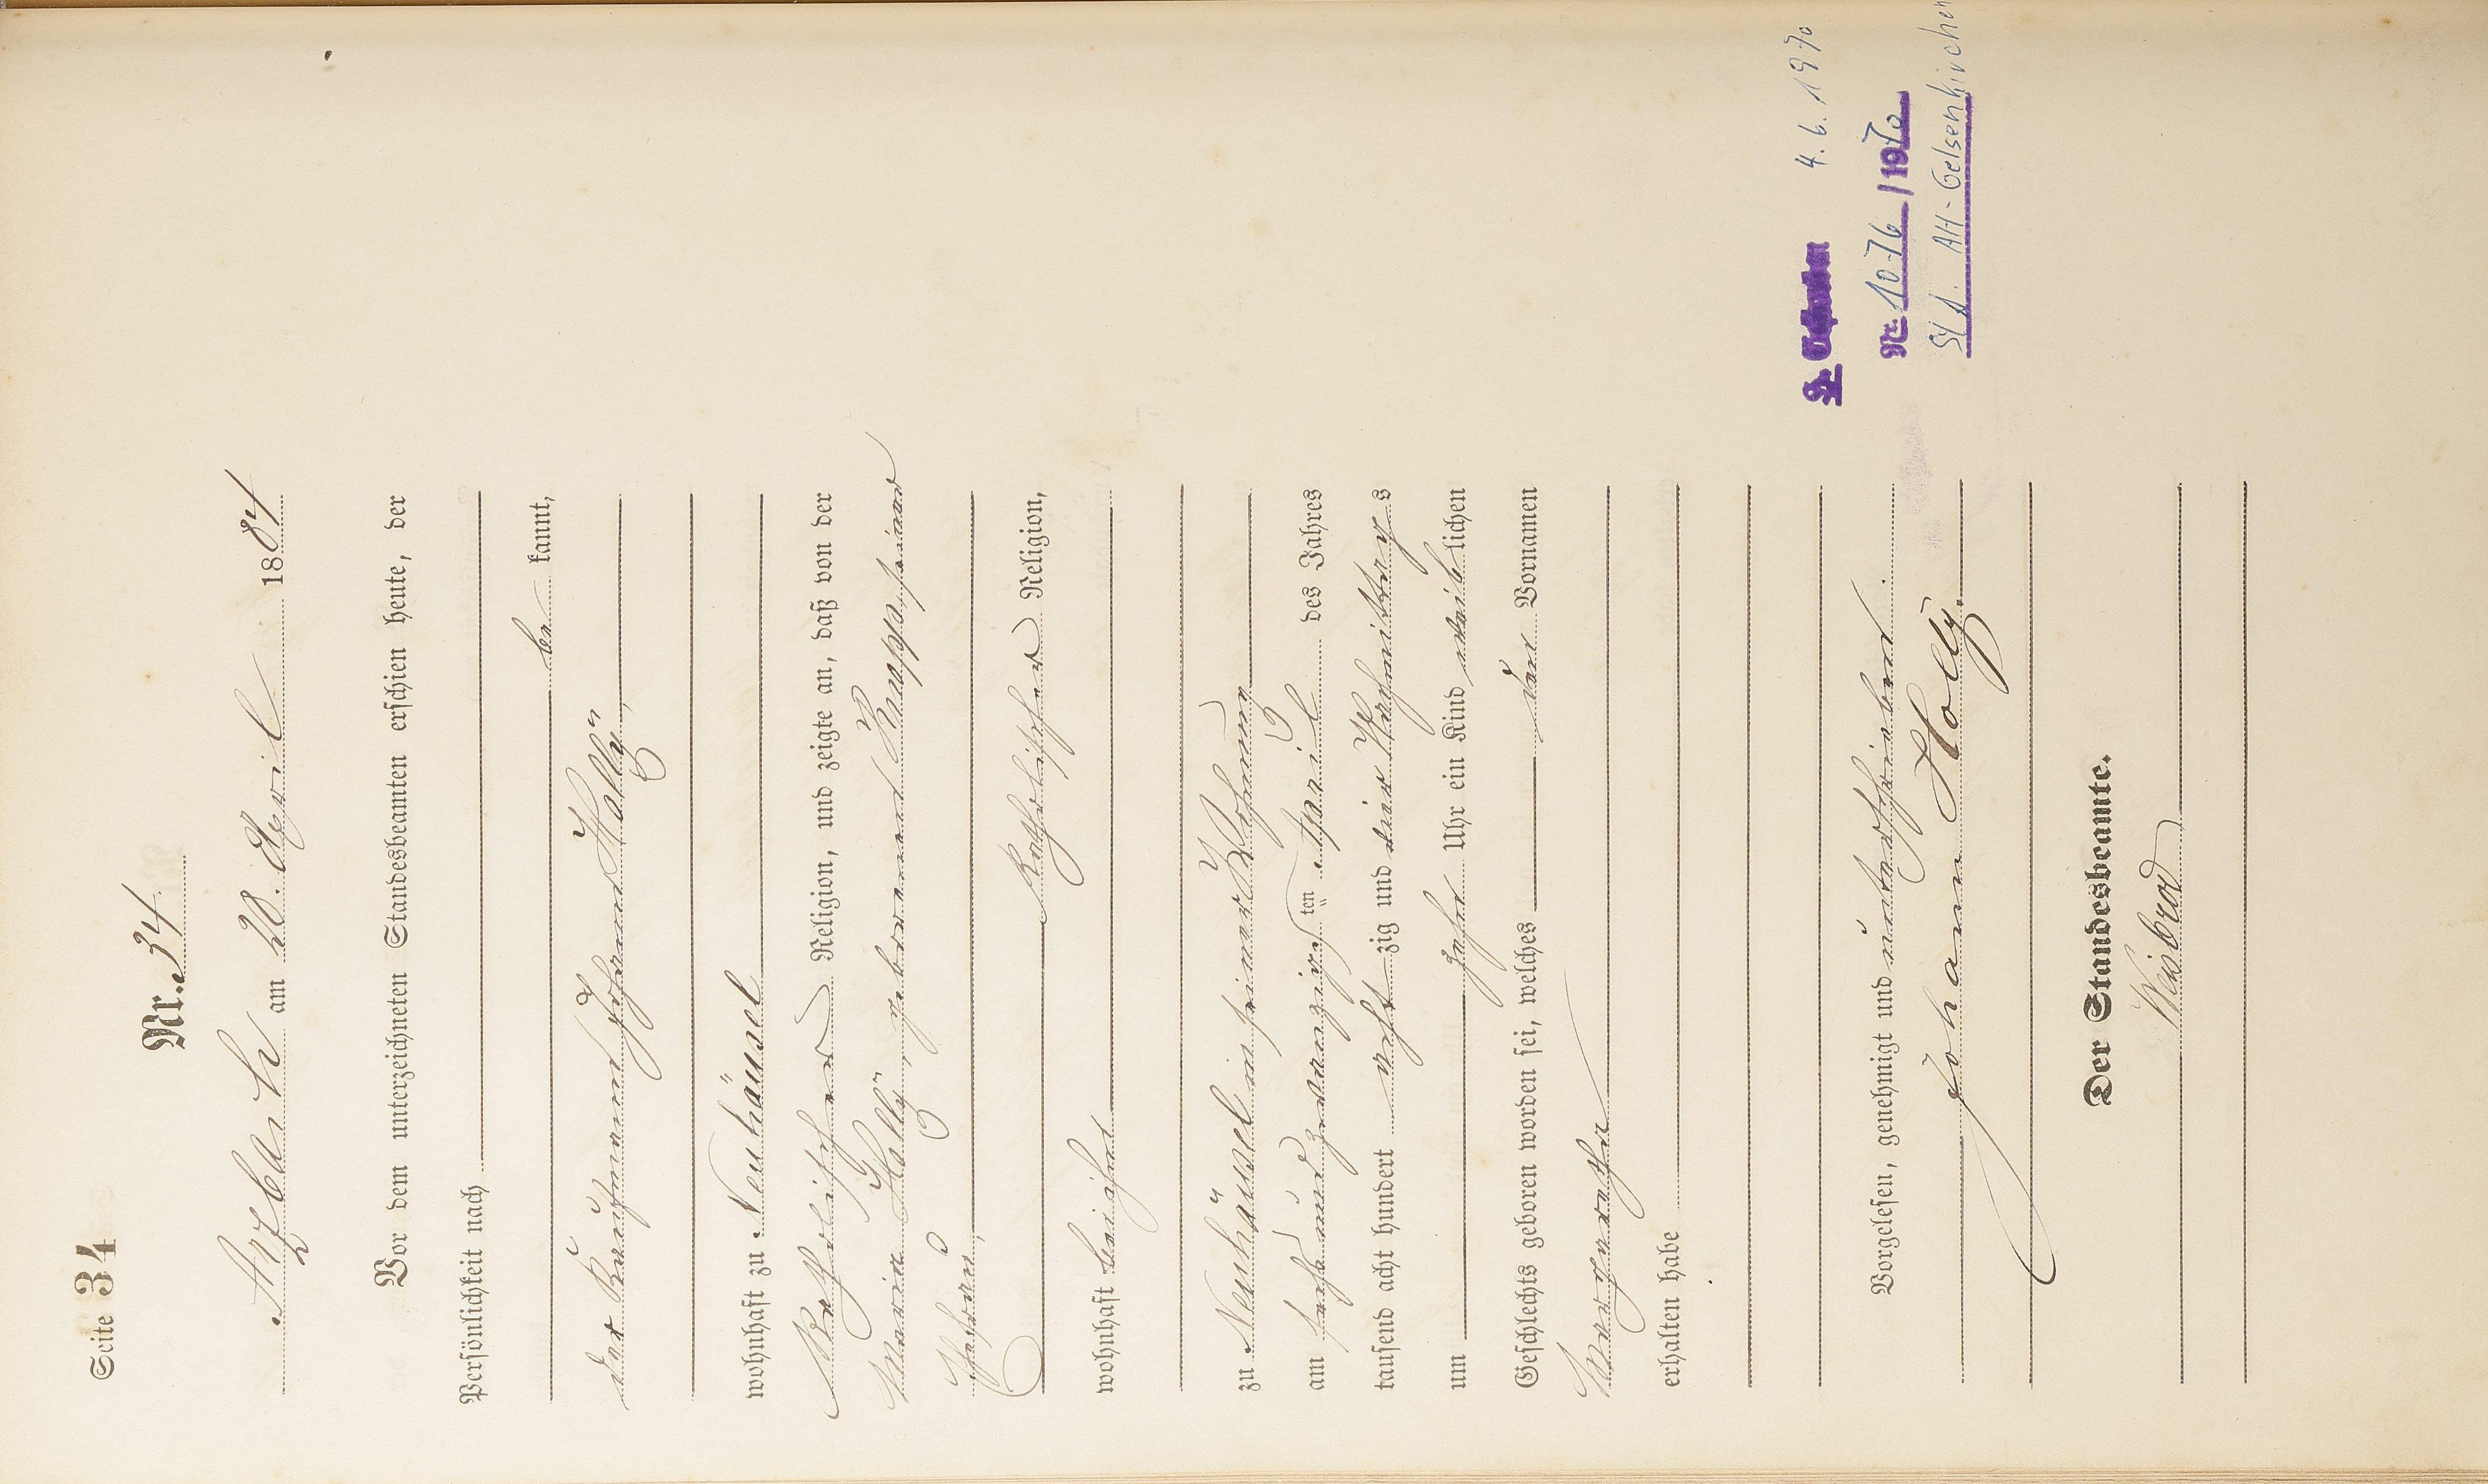 Seite 34
Nr. 34.
Arzbach am 28. April 1884
Vor dem unterzeichneten Standesbeamten erschien heute, der
Persönlichkeit nach
be kannt,
der Kaufmann Johann Holly,
wohnhaft zu Neuhäusel
katholischer Religion, und zeigte an, daß von der
Maria Holly, geborenen Knapp, seiner
Ehefrau,
katholischer Religion,
wohnhaft bei ihm
zu Neuhäusel in seiner Wohnung
am sechs und zwanzigsten April des Jahres
tausend acht hundert acht zig und vier Nachmittags
um zehn Uhr ein Kind weiblichen
Geschlechts geboren worden sei, welches den Vornamen
Margaretha
erhalten habe
Vorgelesen, genehmigt und unterschrieben.
Johann Holly.
Der Standesbeamte.
Weisbrod
4. 6. 1970
Nr. 1076/1970
St A. Alt-Gelsenkirchen